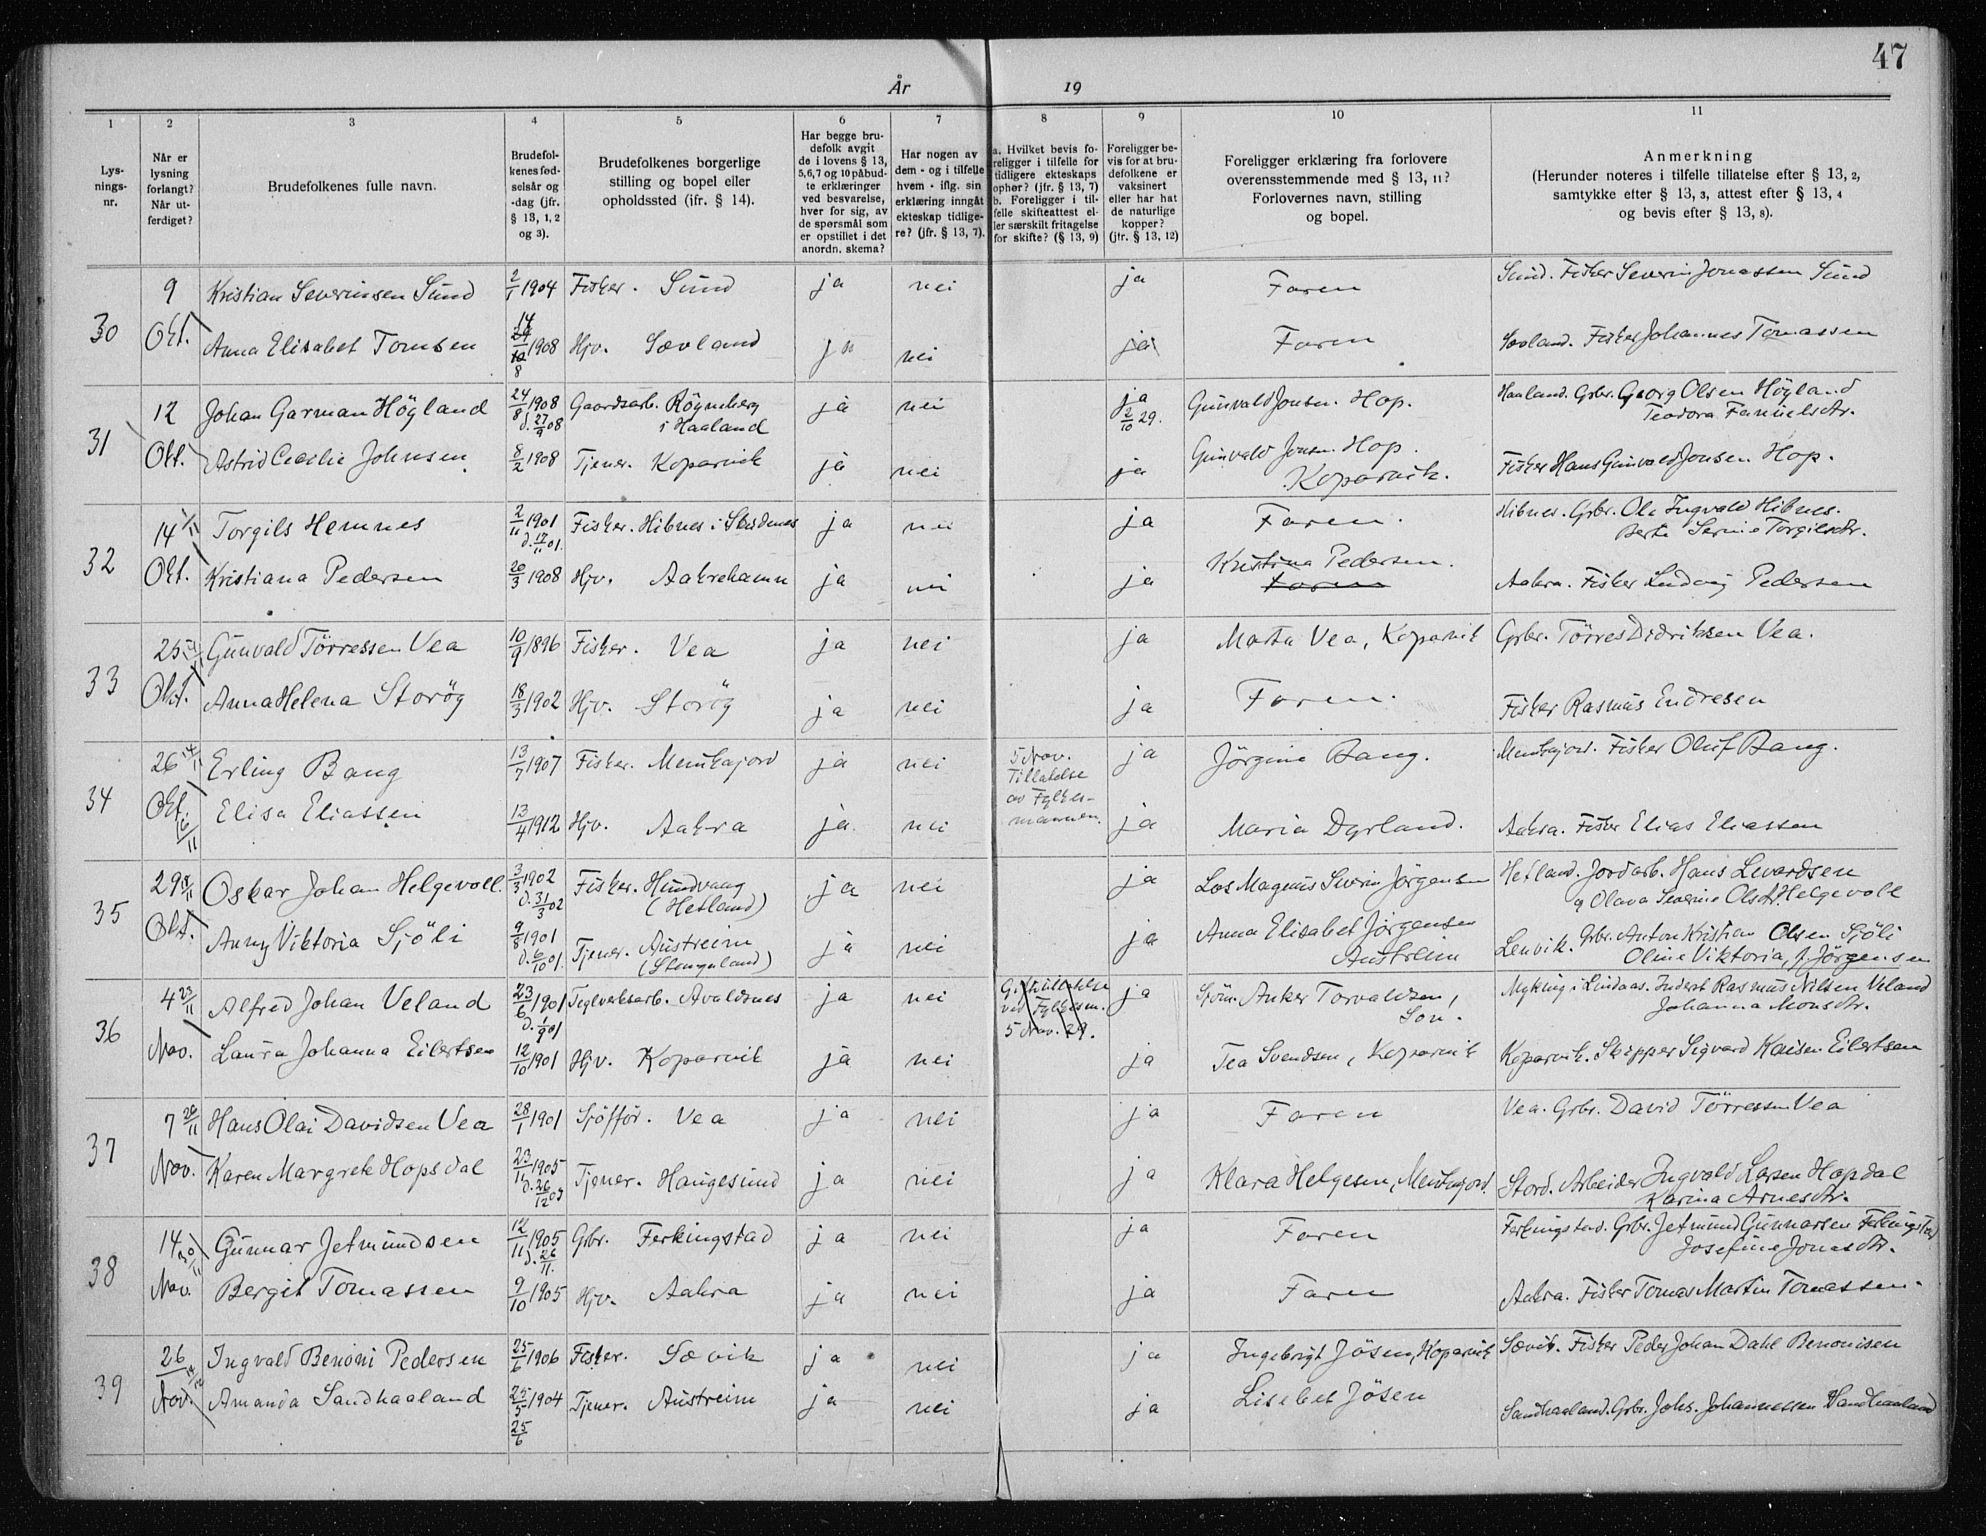 47
År 19
1 2 3 4 5 6 7 8 9 10 11
Lysningsnr.
Når er lysning forlangt? Når utferdiget?
Brudefolkenes fulle navn.
Brudefolkenes fødselsår og -dag (jfr. § 13, 1, 2 og 3).
Brudefolkenes borgerlige stilling og bopel eller opholdssted (ifr. § 14).
Har begge brudefolk avgit de i lovens § 13, 5,6,7 og 10 påbudte erklæringer ved besvarelse, hver for sig, av de spørsmål som er opstillet i det anordn. skema?
Har nogen av dem - og i tilfelle hvem - iflg. sin erklæring inngåt ekteskap tidligere? (jfr. § 13, 7).
a. Hvilket bevis foreligger i tilfelle for tidligere ekteskaps ophør? (jfr. § 13, 7) b. Foreligger i tilfelle skifteattest eller særskilt fritagelse for skifte? (§ 13, 9)
Foreligger bevis for at brudefolkene er vaksinert eller har hat de naturlige kopper? (jfr. § 13, 12)
Foreligger erklæring fra forlovere overensstemmende med § 13, 11? Forlovernes navn, stilling og bopel.
Anmerkning (Herunder noteres i tilfelle tillatelse efter § 13, 2, samtykke efter § 13, 3, attest efter § 13, 4 og bevis efter § 13, 8).
30 9 Kristian Severinsen Sund 2/1 1904 Fisker. Sund ja nei ja Faren Sund. Fisker Severin Jonassen Sund
Okt. Anna Elisabet Tomsen 14 8 1908 Hjv. Sævland ja nei ja Faren Sævland. Fisker Johannes Tomassen
31 12 Johan Garman Högland 24/8 1908 d. 27/9 08 Gaardsarb. Rögneberg i Haaland ja nei ja 2/10 29. Gunvald Jonsen. Hop. Haaland. Grbr. Georg Olsen Högland Teodora Fanuelsdtr.
Okt. Astrid Cecilie Johnsen 8/2 1908 Tjener. Kopervik ja nei ja Gunvald Jonsen Hop. Kopervik. Fisker Hans Gunvald Jonsen Hop.
32 14 1/11 Torgils Hemnes 2/11 1901 d. 17/11 01. Fisker. Hibnes i Skudenes ja nei ja Faren. Hibnes. Grbr. Ole Ingvald Hibnes. Berta Serine Torgilsdtr.
Okt. Kristiana Pedersen 20/3 1908 Hjv. Aakrehamn ja nei ja Kristina Pedersen. Faren Aakra. Fisker Ludvig Pedersen
33 25 Gunvald Törressen Vea 10/9 1896 Fisker. Vea ja nei ja Marta Vea, Kopervik Grbr. Törres Didriksen Vea.
Okt. Anna Helena Storög 18/3 1902 Hjv. Storög ja nei ja Faren. Fisker Rasmus Endresen
34 26 14/11 Erling Bang 13/7 1907 Fisker. Munkajord ja nei 5 Nov. Tillatelse av Fylkesmannen. ja Jörgine Bang. Munkajord. Fisker Oluf Bang.
Okt. 16/11 Elisa Eliassen 13/4 1912 Hjv. Aakra ja nei ja Maria Dyrland. Aakra. Fisker Elias Eliassen
35 29 Oskar Johan Helgevoll. 3/3 1902 d. 31/3 02 Fisker. Hundvaag (Hetland) ja nei ja Lars Magnus Severin Jörgensen Hetland. Jordarb. Hans Levardsen og Olava Severine Olsdtr. Helgevoll
Okt. Anny Viktoria Sjöli 9/8 1901 d. 6/10 01. Tjener. Austreim (Stangeland) ja nei ja Anna Elisabet Jörgensen Austreim Lenvik. Grbr. Anton Kristian Olsen Sjöli Oline Viktoria, f. Jörgensen
36 4 23/11 Alfred Johan Veland 23/6 1901 d. 1/9 01 Teglverksarb. Avaldsnes ja nei 5 Nov. 29. ja Sjöm. Anker Torvaldsen, Son. Myking i Lindaas. Inderst Rasmus Nilsen Veland Johanna Monsdtr.
Nov. Laura Johanna Eilertsen 12/10 1901 Hjv. Kopervik ja nei ja Tea Svendsen, Kopervik Kopervik. Skipper Sigvard Kaisen Eilertsen
37 7 20/11 Hans Olai Davidsen Vea 28/1 1901 Sjöfför. Vea ja nei ja Faren Vea. Grbr. David Törressen Vea
Nov. Karen Margrete Hopsdal 23/11 1905 d. 26/12 05 Tjener. Haugesund ja nei ja Klara Helgesen, Munkajord. Stord. Arbeider Ingvald Larsen Hopdal Karina Arnesdtr.
38 14 30/11 Gunnar Jetmundsen 12/11 1905 d. 26/11. Grbr. Ferkingstad ja nei ja Faren Ferkingstad. Grbr. Jetmund Gunnarsen Ferkingstad Josefine Jonasdtr.
Nov. Bergit Tomassen 9/10 1905 Hjv. Aakra ja nei ja Faren Aakra. Fisker Tomas Martin Tomassen.
39 26 Ingvald Benoni Pedersen 25/6 1906 Fisker. Sævik ja nei ja Ingebrigt Jösen, Kopervik Sævik. Fisker Peder Johan Dahl Benonisen
Nov. Amanda Sandhaaland 25/5 1904 25/6 Tjener. Austreim ja nei ja Lisebet Jösen Sandhaaland. Grbr. Johs. Johannessen Sandhaaland